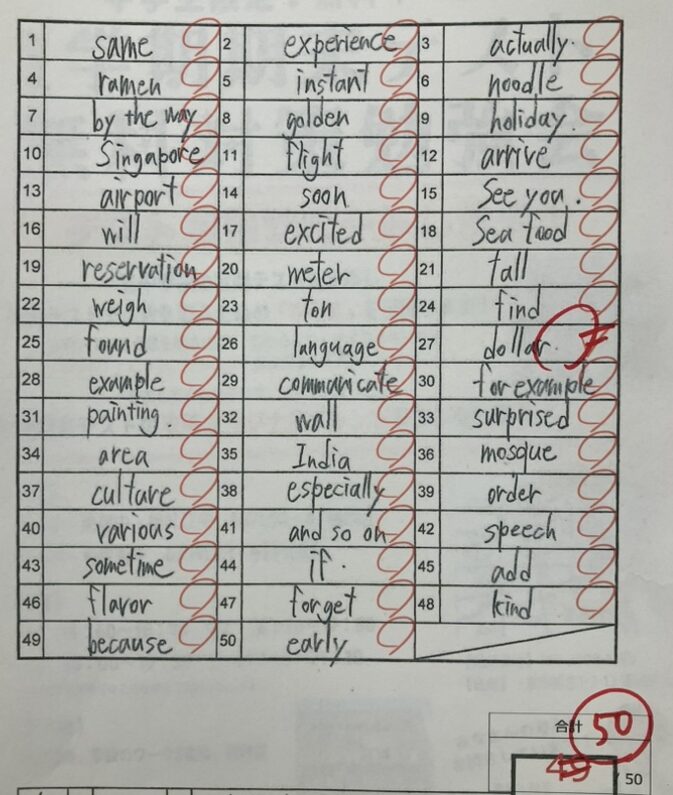 1 same 2 experience 3 actually.
4 ramen 5 instant 6 noodle
7 by the way 8 golden 9 holiday.
10 Singapore 11 flight 12 arrive
13 airport 14 soon 15 See you.
16 will 17 excited 18 Sea food
19 reservation 20 meter 21 tall
22 weigh 23 ton 24 find
25 found 26 language 27 dollar.
28 example 29 communicate 30 for example
31 painting. 32 wall 33 surprised
34 area 35 India 36 mosque
37 culture 38 especially 39 order
40 various 41 and so on 42 speech
43 sometime 44 if. 45 add
46 flavor 47 forget 48 kind
49 because 50 early
合計 50
49 / 50